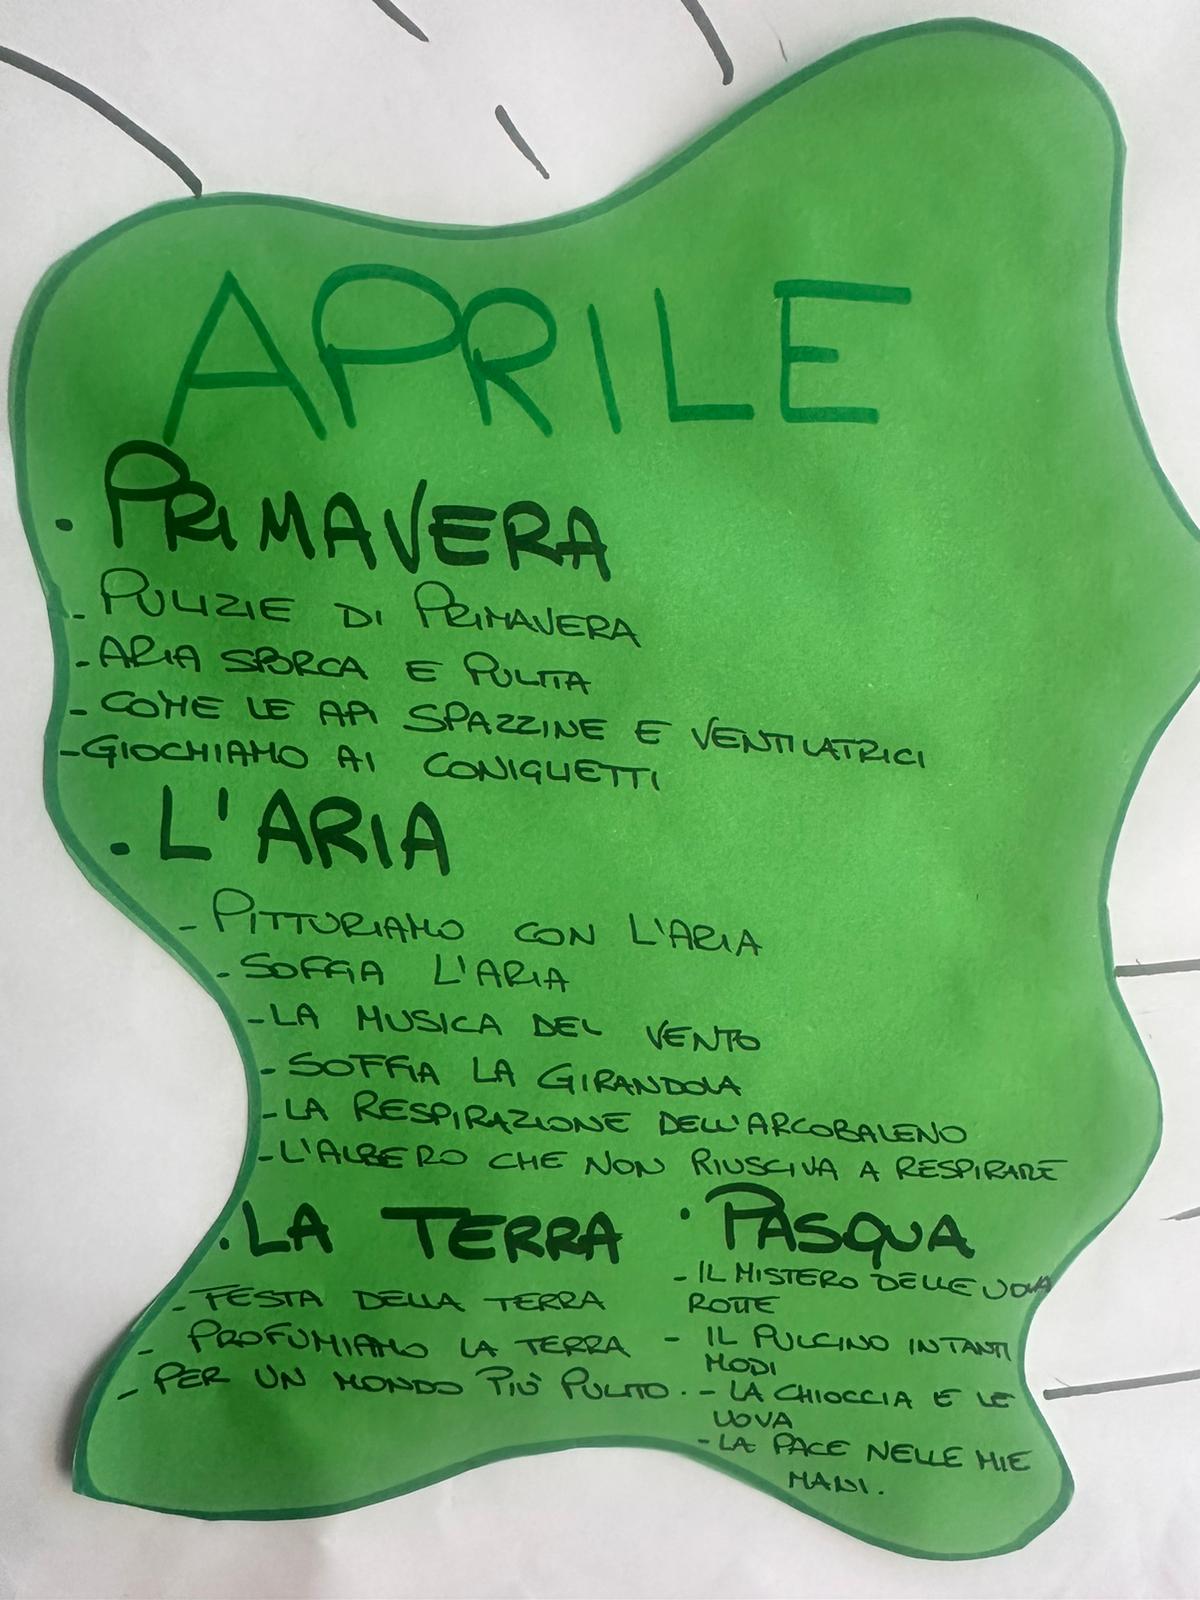 APRILE
· PRIMAVERA
- PULIZIE DI PRIMAVERA
- ARIA SPORCA E PULITA
- COME LE API SPAZZINE E VENTILATRICI
- GIOCHIAMO AI CONIGLIETTI
· L'ARIA
- PITTURIAMO CON L'ARIA
- SOFFIA L'ARIA
- LA MUSICA DEL VENTO
- SOFFIA LA GIRANDOLA
- LA RESPIRAZIONE DELL'ARCOBALENO
- L'ALBERO CHE NON RIUSCIVA A RESPIRARE
· LA TERRA
- FESTA DELLA TERRA
- PROFUMIAMO LA TERRA
- PER UN MONDO PIÙ PULITO.
· PASQUA
- IL MISTERO DELLE UOVA
ROTTE
- IL PULCINO IN TANTI
MODI
- LA CHIOCCIA E LE
UOVA
- LA PACE NELLE MIE
MANI.